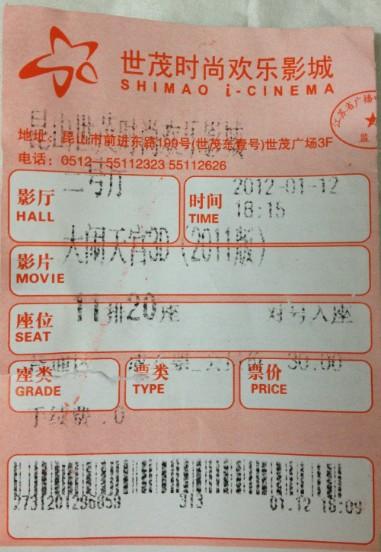 世茂时尚欢乐影城
SHIMAO i-CINEMA
昆山世茂时尚欢乐影城
地址: 昆山市前进东路199号(世茂东壹号)世茂广场3F
电话: 0512-55112323 55112626
二号厅
影厅 HALL
时间 TIME
2012-01-12
18:15
大闹天宫3D (2011版)
影片 MOVIE
11排20座 对号入座
座位 SEAT
30.00
座类 GRADE
票类 TYPE
票价 PRICE
手续费:0
313 01.12 16:09